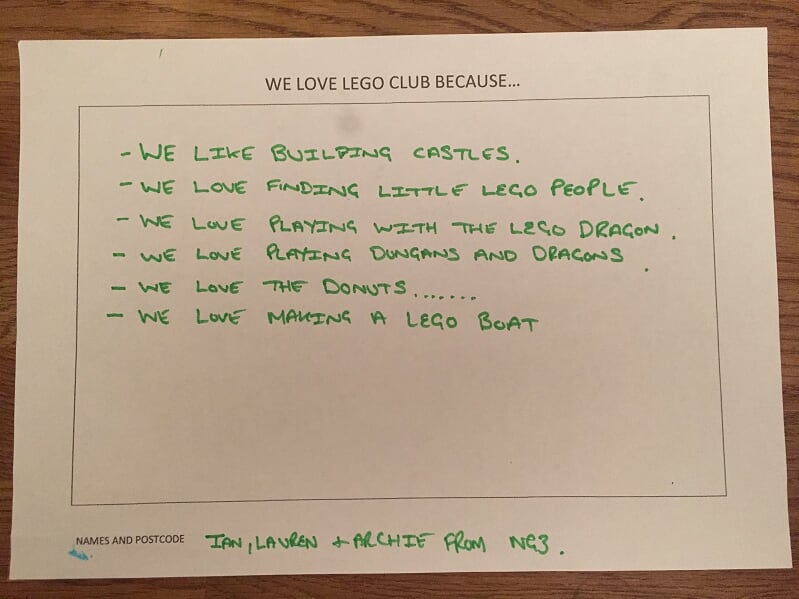 WE LOVE LEGO CLUB BECAUSE...
- WE LIKE BUILDING CASTLES.
- WE LOVE FINDING LITTLE LEGO PEOPLE.
- WE LOVE PLAYING WITH THE LEGO DRAGON.
- WE LOVE PLAYING DUNGANS AND DRAGONS.
- WE LOVE THE DONUTS.......
- WE LOVE MAKING A LEGO BOAT
NAMES AND POSTCODE IAN, LAUREN + ARCHIE FROM NG3.